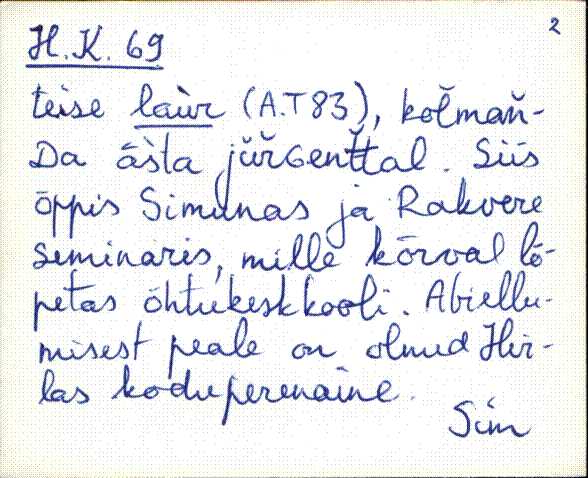 2
H.K. 69
teise laùr (A.T 83), kolman-
Da āsta jürGenttal. Siis
õppis Simunas ja Rakvere
seminaris, mille kõrval lõ-
petas õhtukeskkooli. Abiellu-
misest peale on olnud Hir-
las koduperenaine.
Sim